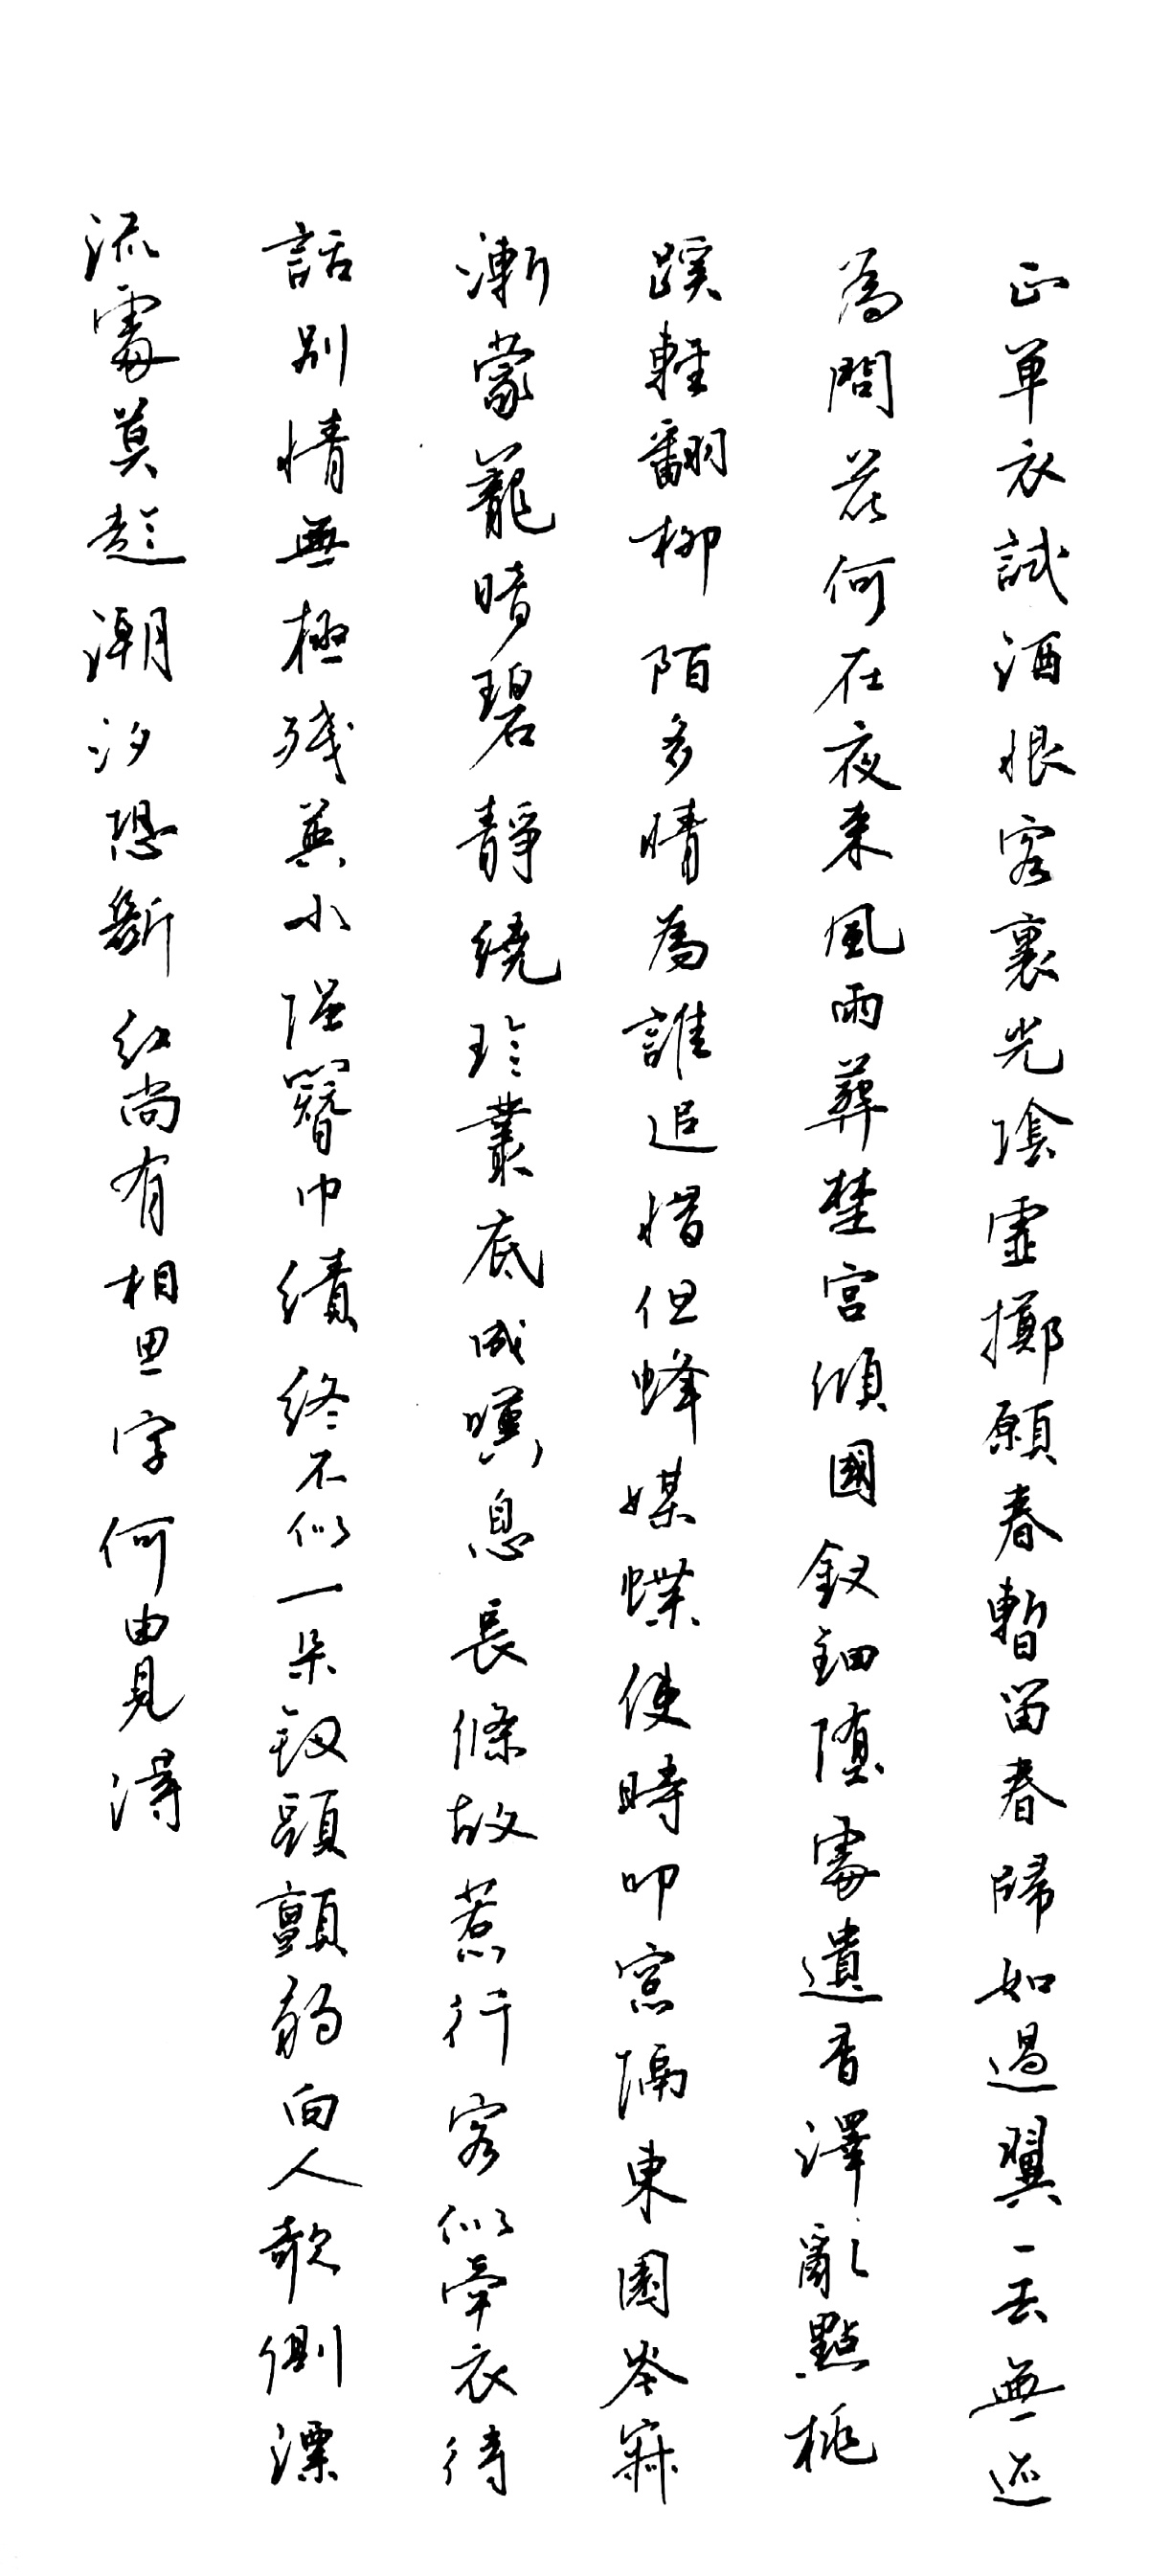 正單衣試酒恨客裏光陰虛擲願春暫留春歸如過翼一去無迹
為問花何在夜來風雨葬楚宮傾國釵鈿墮處遺香澤亂點桃
蹊輕翻柳陌多情為誰追惜但蜂媒蝶使時叩窓隔東園岑寂
漸蒙蘢暗碧靜繞珍叢底成嘆息長條故惹行客似牽衣待
話別情無極殘英小強簪巾績終不似一朵釵頭顫裊向人欹側漂
流處莫趁潮汐恐斷紅尚有相思字何由見得